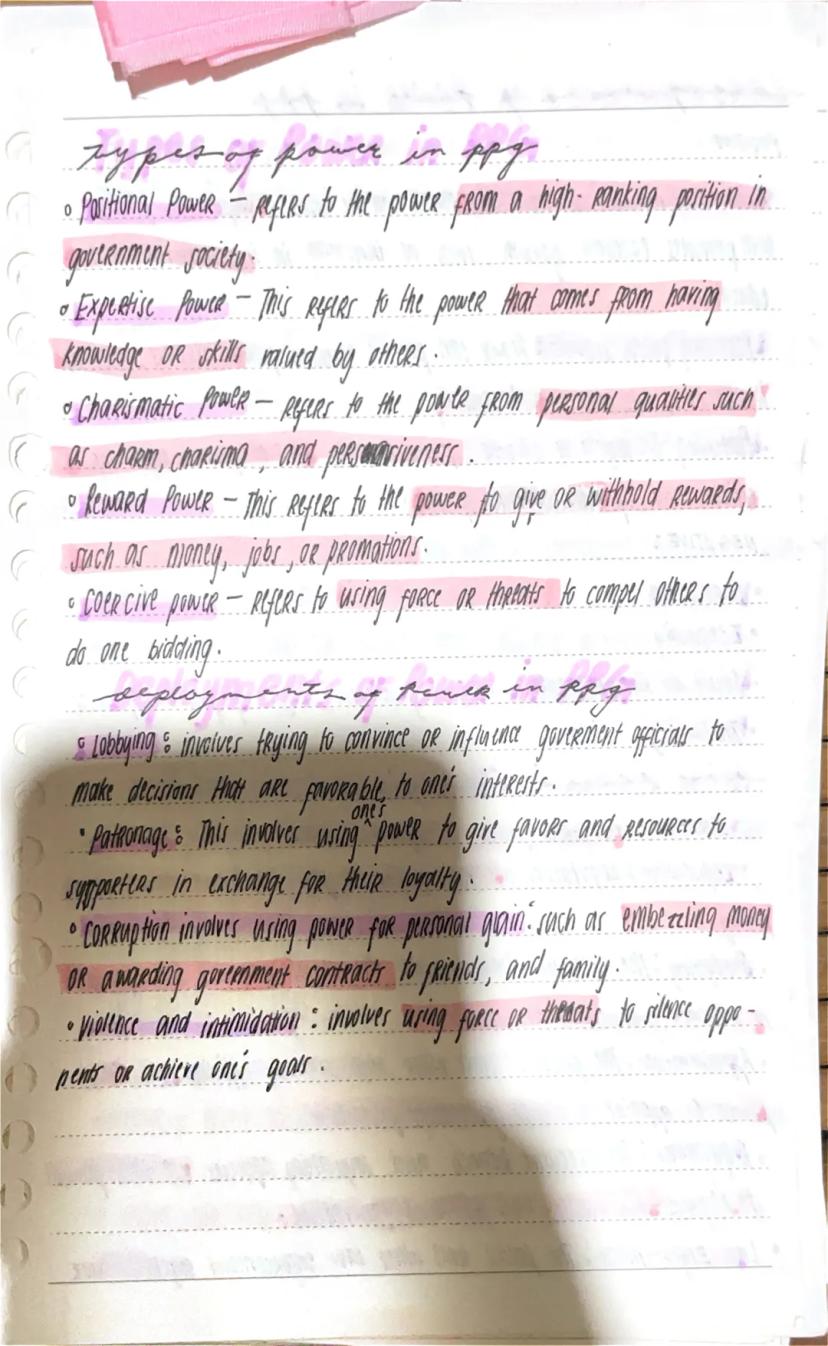 Types of power in PPG
Positional Power – refers to the power from a high-ranking position in
government society.
Expertise Power – This refers to the power that comes from having
knowledge or skills valued by others.
Charismatic Power – refers to the power from personal qualities such
as charm, charima, and persuasiveness.
Reward Power – This refers to the power to give or withhold rewards,
such as money, jobs, or promotions.
Coercive power – refers to using force or threats to compel others to
do one bidding.
Deployments of Power in PPG
Lobbying: involves trying to convince or influence goverment officials to
make decisions that are favorable, to one's interests.
Patronage: This involves using one's power to give favors and resources to
supporters in exchange for their loyalty.
Corruption involves using power for personal grain: such as embezzling money
or awarding government contracts to friends, and family.
Violence and intimidation: involves using force or threats to silence oppo-
nents or achieve one's goals.